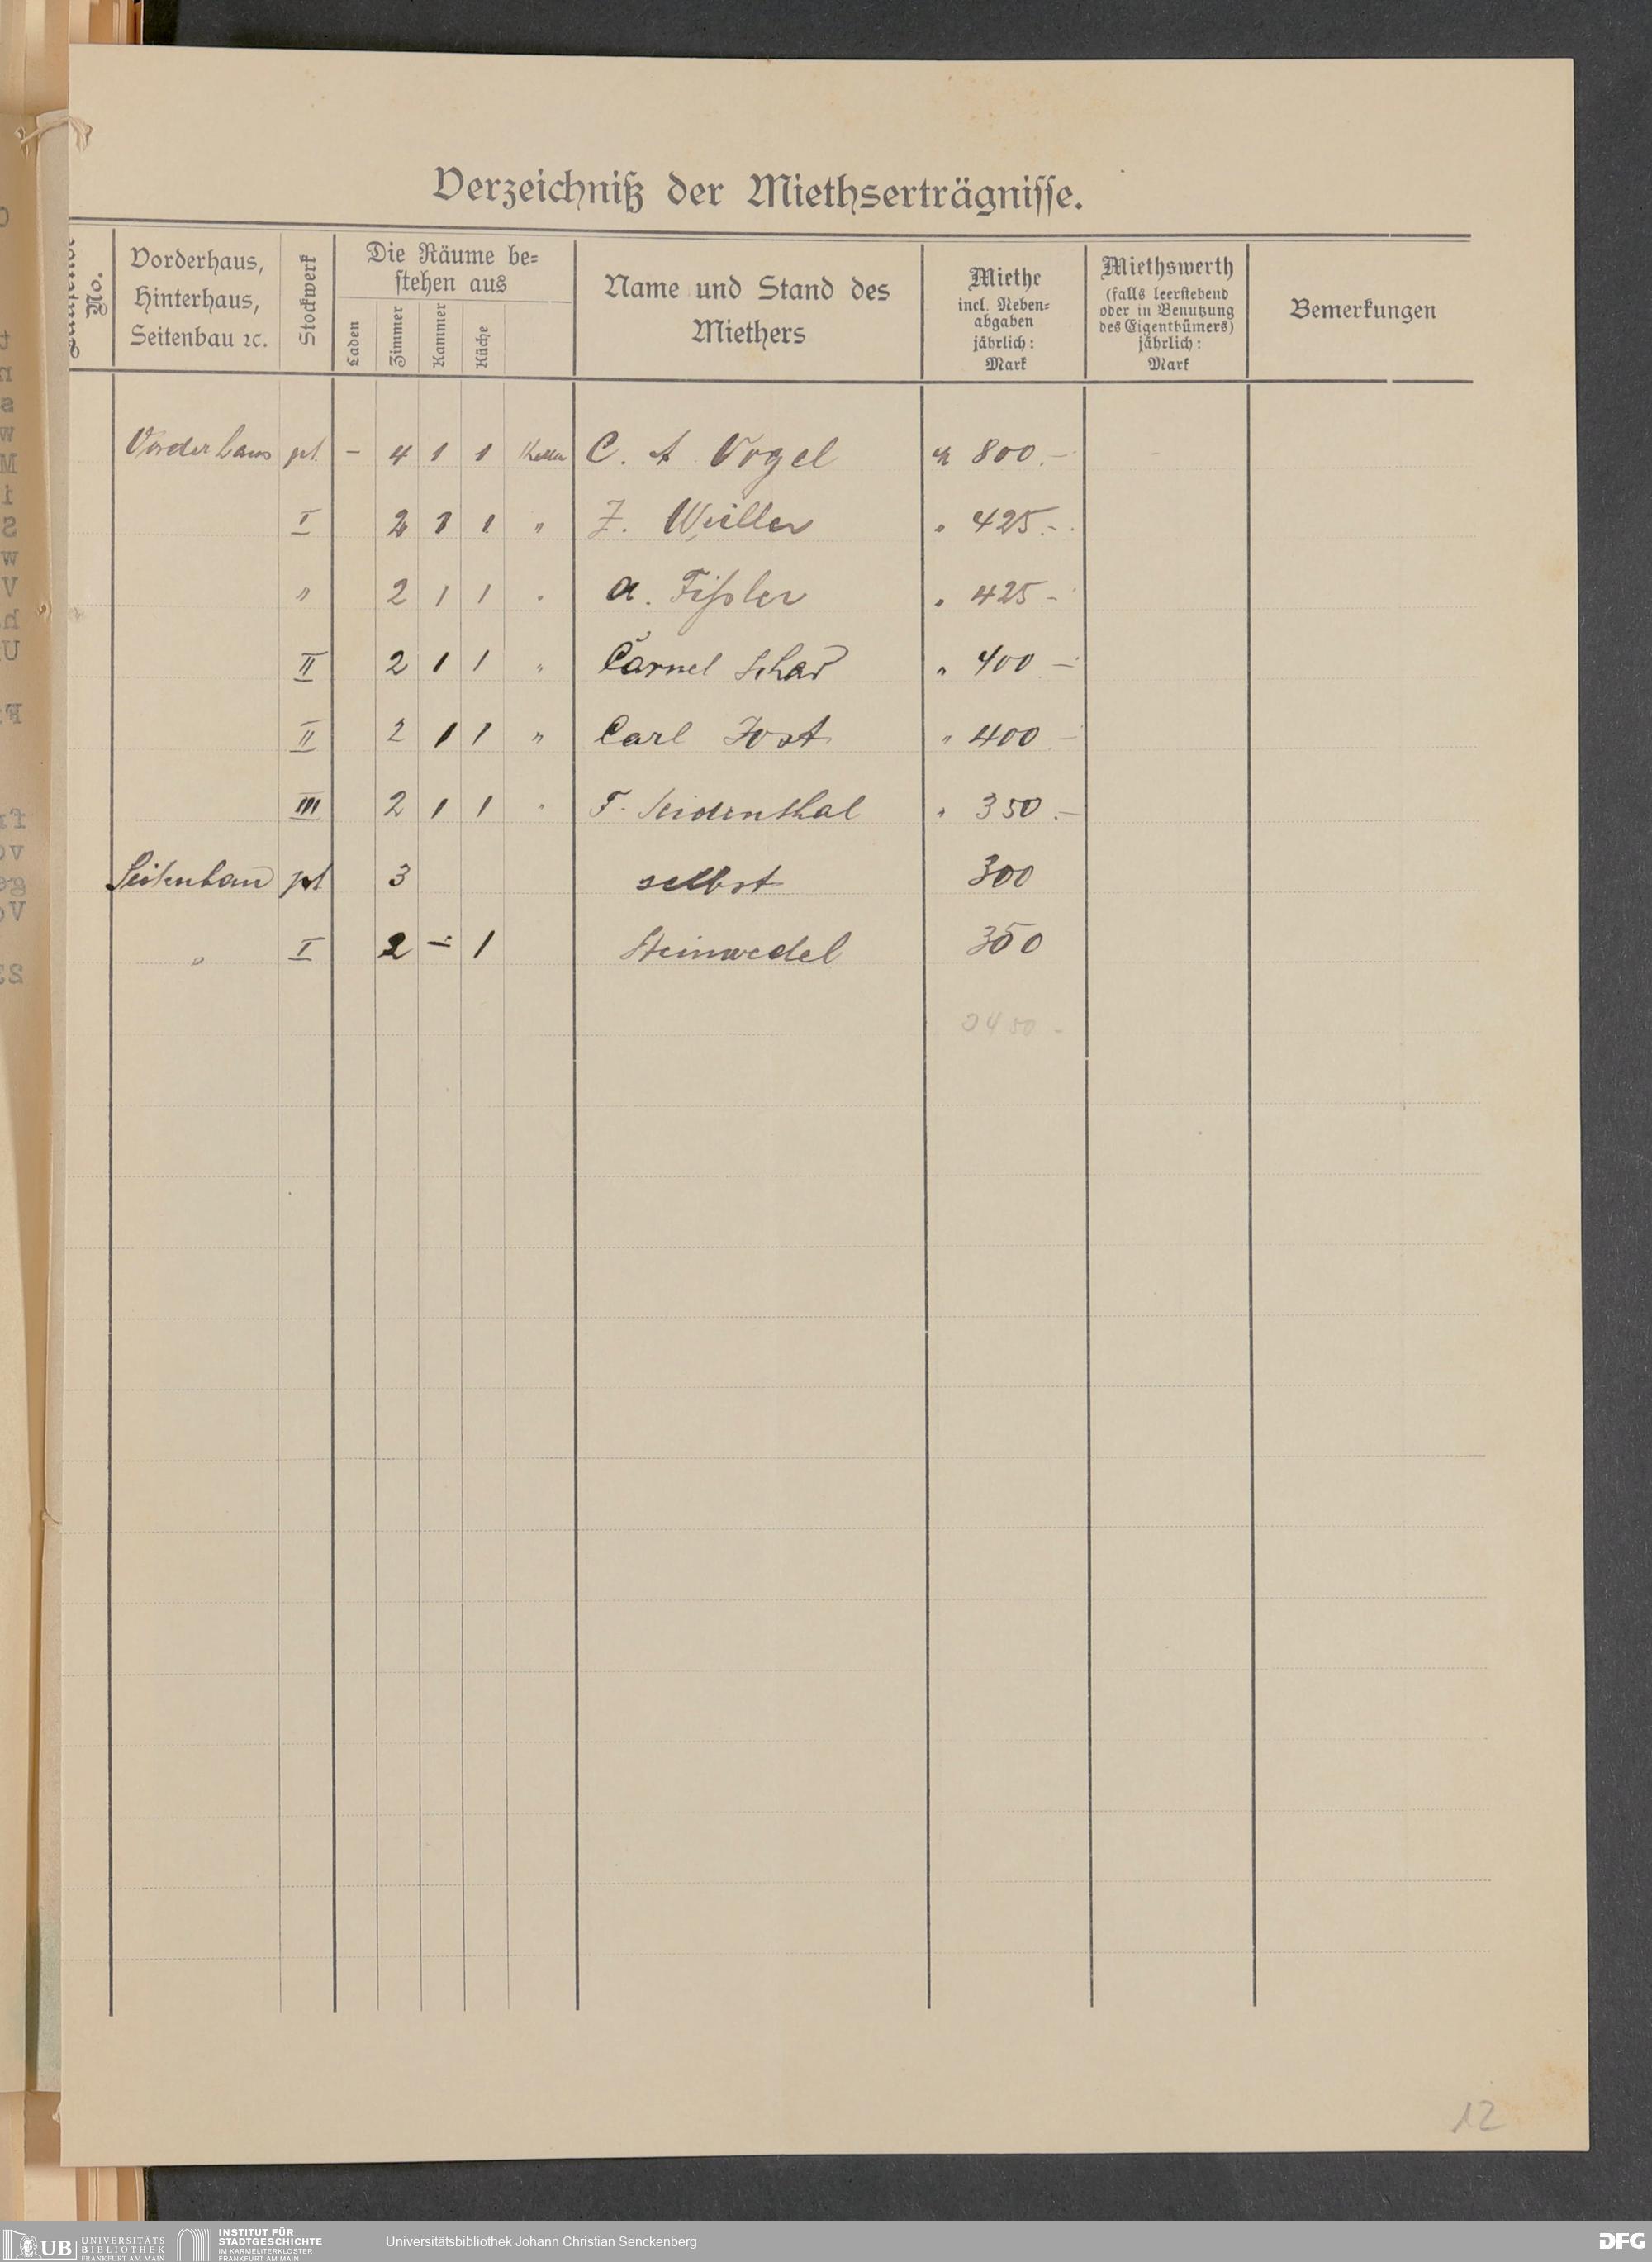 Verzeichniß der Miethserträgnisse.
Laufende No.
Vorderhaus,
Hinterhaus,
Seitenbau ꝛc.
Stockwerk
Die Räume be-
stehen aus
Laden
Zimmer
Kammer
Küche
Name und Stand des
Miethers
Miethe
incl. Neben-
abgaben
jährlich:
Mark
Miethswerth
(falls leerstehend
oder in Benutzung
des Eigenthümers)
jährlich:
Mark
Bemerkungen
Vorderhaus pt. – 4 1 1 Keller C. A Vogel M 800.–
I 2 1 1 " J. Weiller " 425.–
" 2 1 1 " A. Fißler " 425 –
II 2 1 1 " Carnel Schad " 400 –
II 2 1 1 " Carl Jost " 400 –
III 2 1 1 " F. Seidenthal " 350.–
Seitenbau pt 3 selbst 300
" I 2 – 1 Steinwedel 350
3450 –
12
UB UNIVERSITÄTS
BIBLIOTHEK
FRANKFURT AM MAIN
INSTITUT FÜR
STADTGESCHICHTE
IM KARMELITERKLOSTER
FRANKFURT AM MAIN
Universitätsbibliothek Johann Christian Senckenberg
DFG